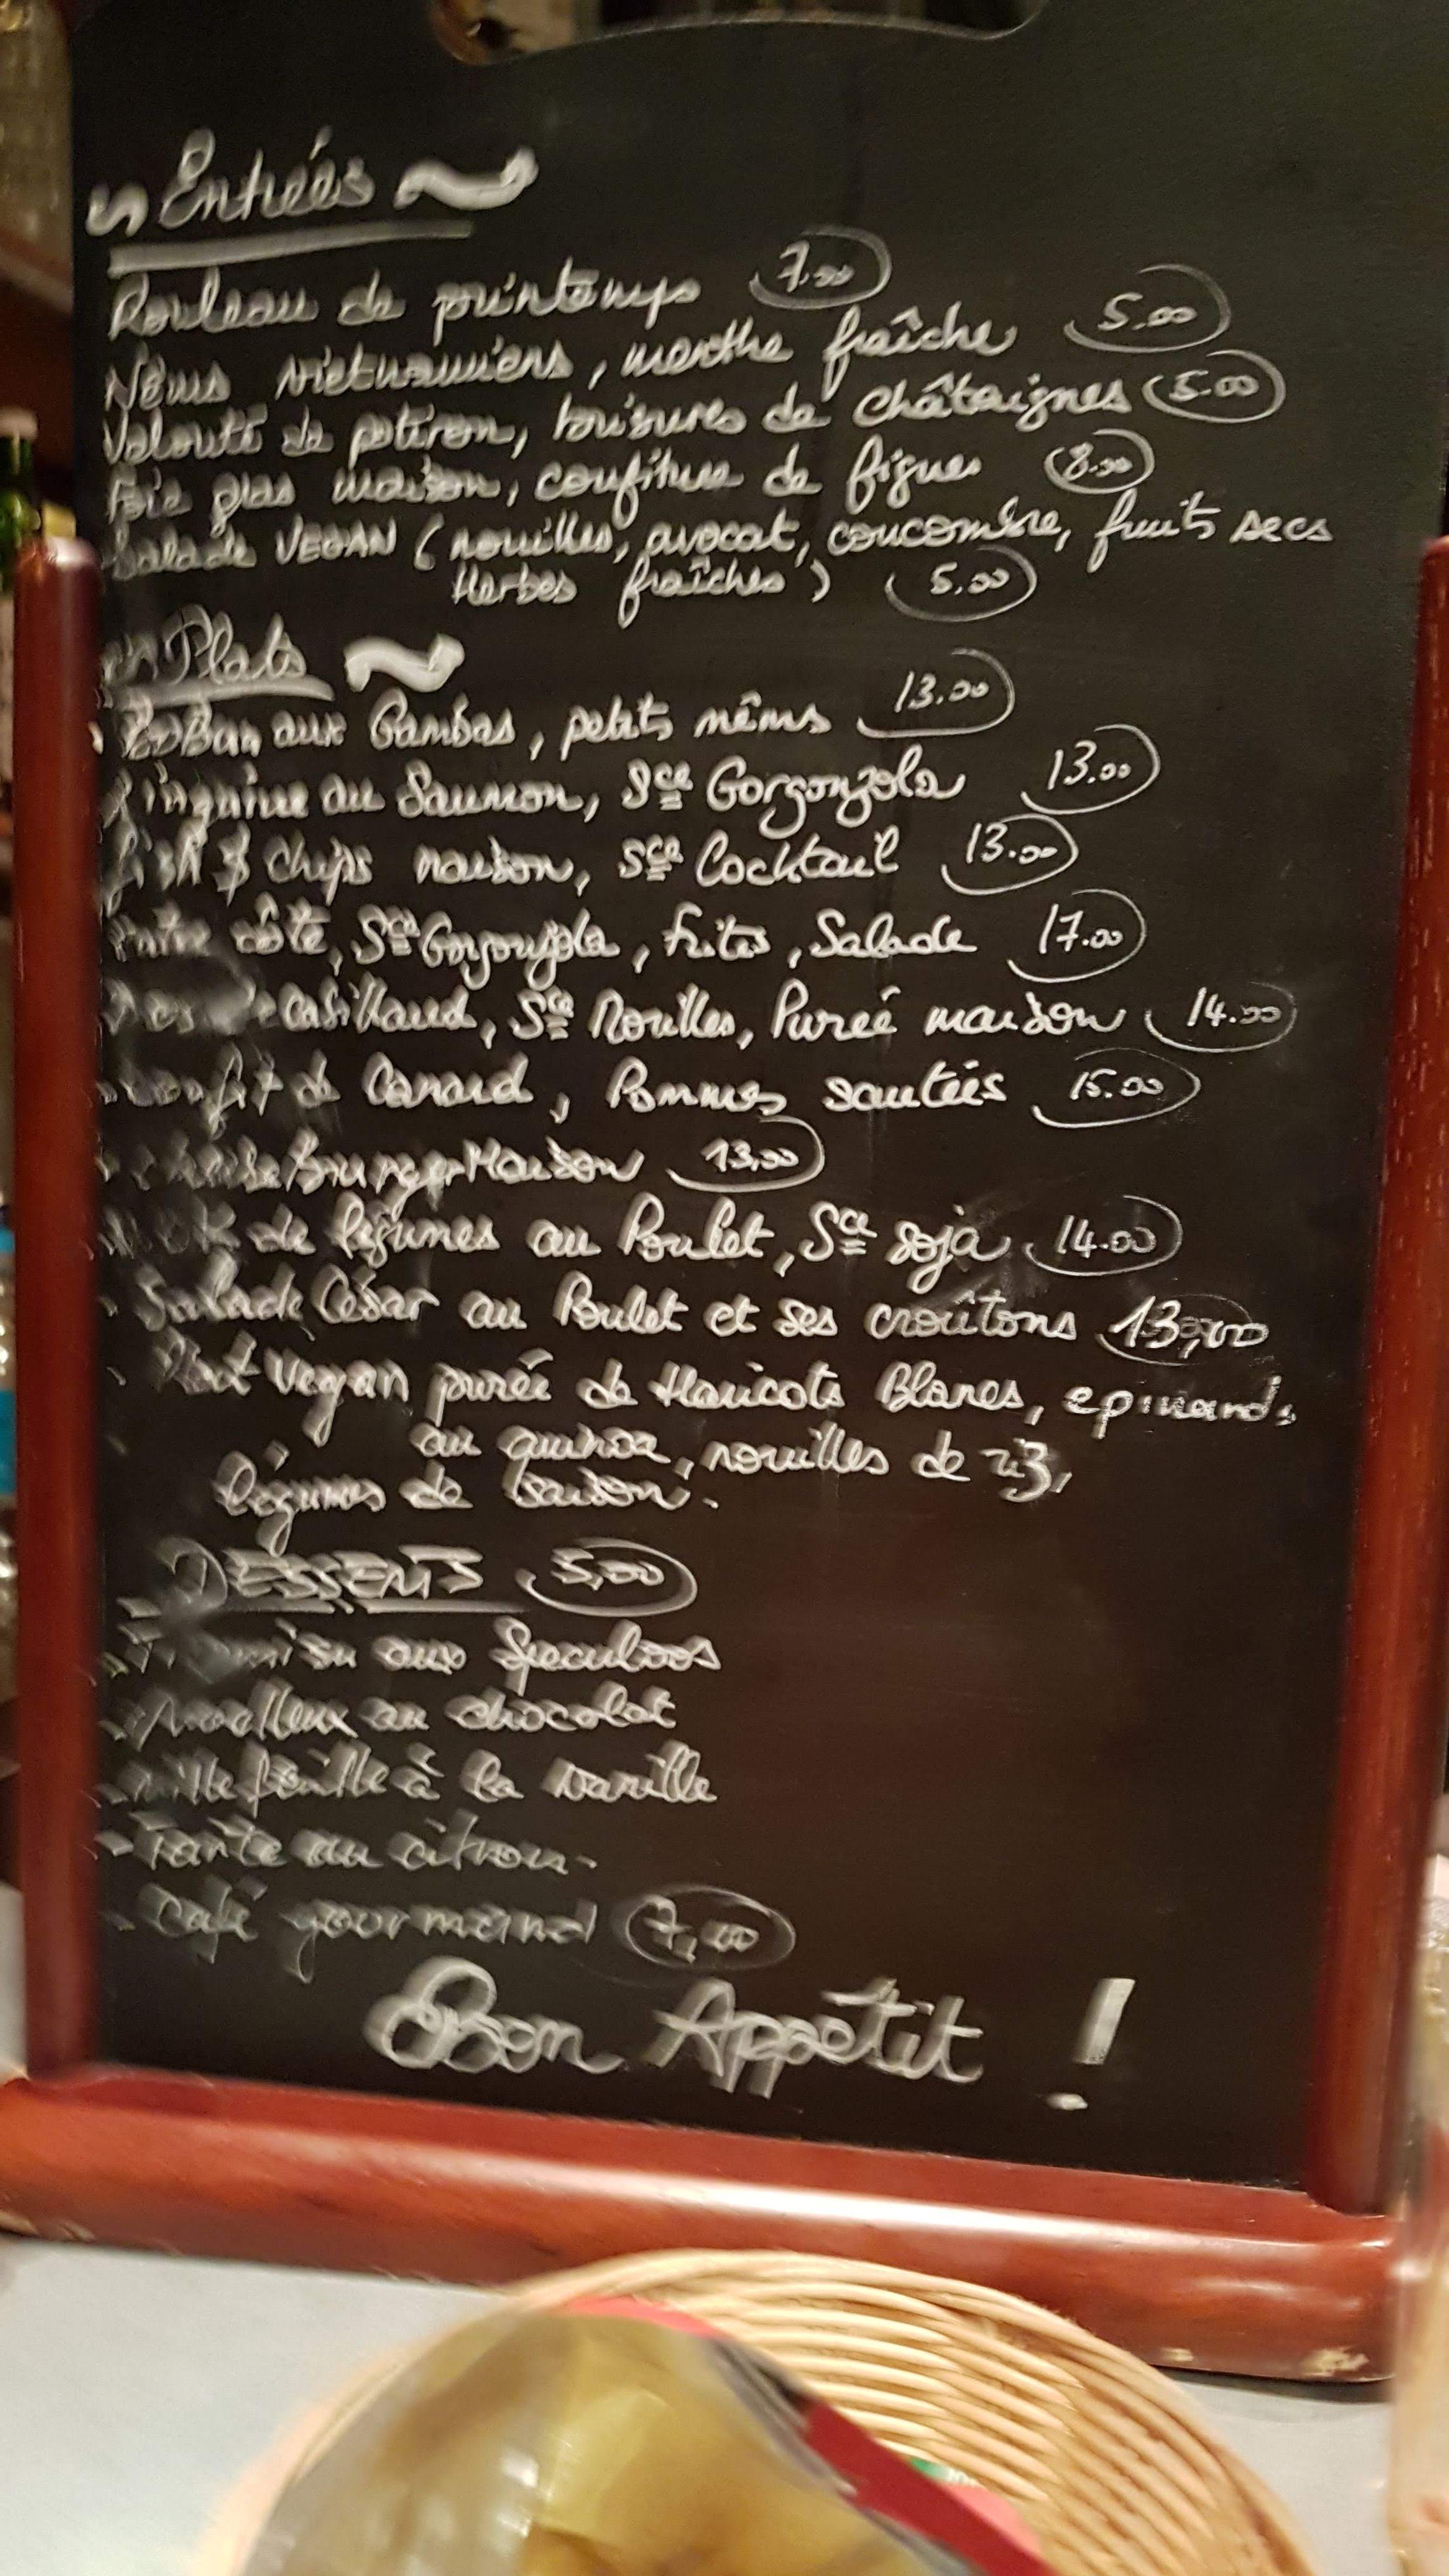 Entrées
Rouleau de printemps 7.00
Nêms vietnamiens, menthe fraîche 5.00
Velouté de potiron, brisures de châtaignes 5.00
Foie gras maison, confiture de figues 8.00
Salade VEGAN (nouilles, avocat, concombre, fruits secs
Herbes fraîches) 5.00
Plats
BoBun aux Gambas, petits nêms 13.00
Linguine au Saumon, Sce Gorgonzola 13.00
Fish & chips maison, Sce Cocktail 13.00
Entre côte, Sce Gorgonzola, frites, Salade 17.00
de Cabillaud, Sce Nouilles, Purée maison 14.00
Confit de Canard, Pommes sautées 15.00
Burger Maison 13,00
Wok de légumes au Poulet, Sce soja 14.00
Salade César au Poulet et ses croûtons 13,00
Plat Vegan purée de Haricots Blancs, epinards
au quinoa, nouilles de riz,
légumes de saison.
DESSERTS 5,00
Tiramisu aux Speculoos
Moelleux au chocolat
Mille feuille à la vanille
- Tarte au citron-
- Café gourmand 7,00
Bon Appétit !